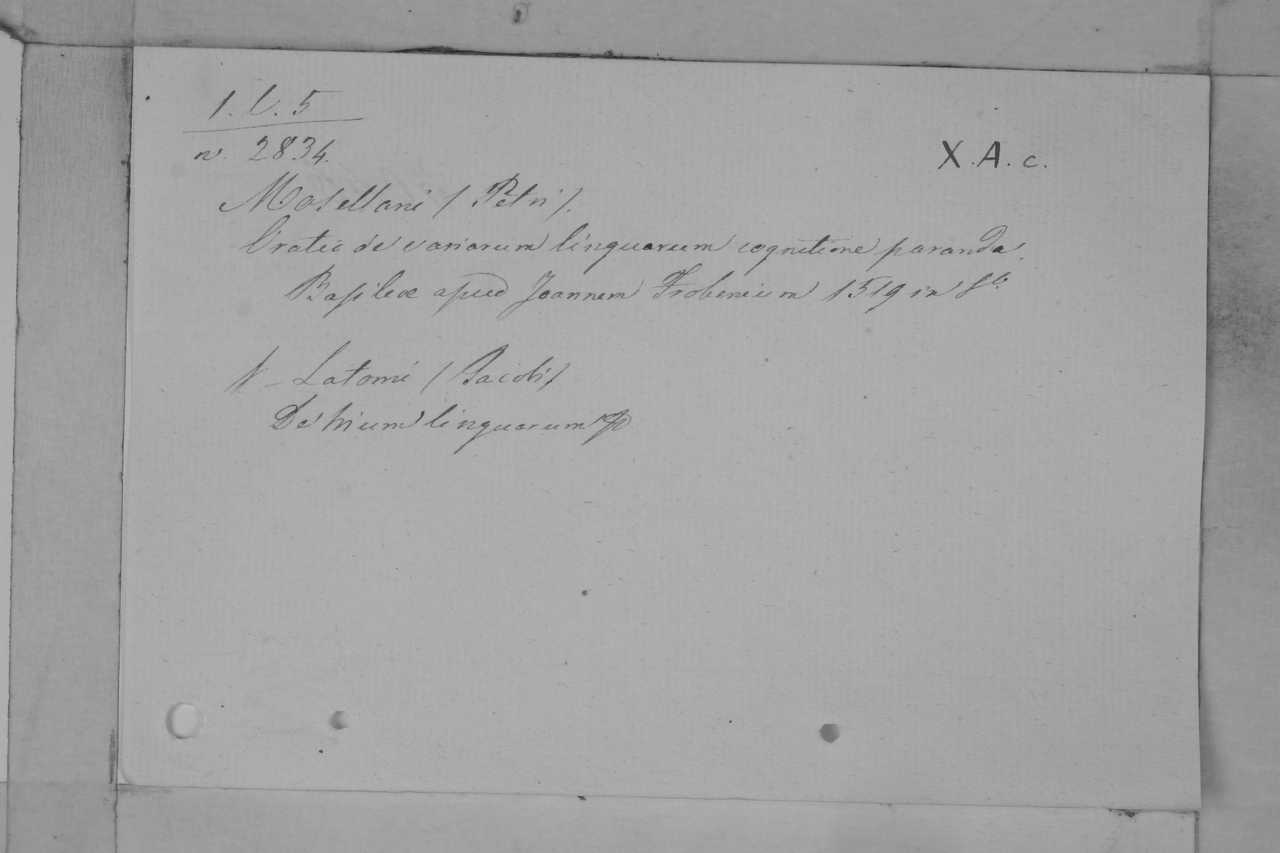 1. b. 5
n. 2834.
X.A.c.
Mosellani / Petri /.
Oratio de variarum linguarum cognitione paranda.
Basileæ apud Joannem Frobenium 1519 in 8º
Latomi / Jacobi /
De trium linguarum